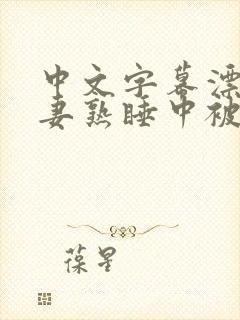 中文字幕漂
妻熟睡中被
葆星